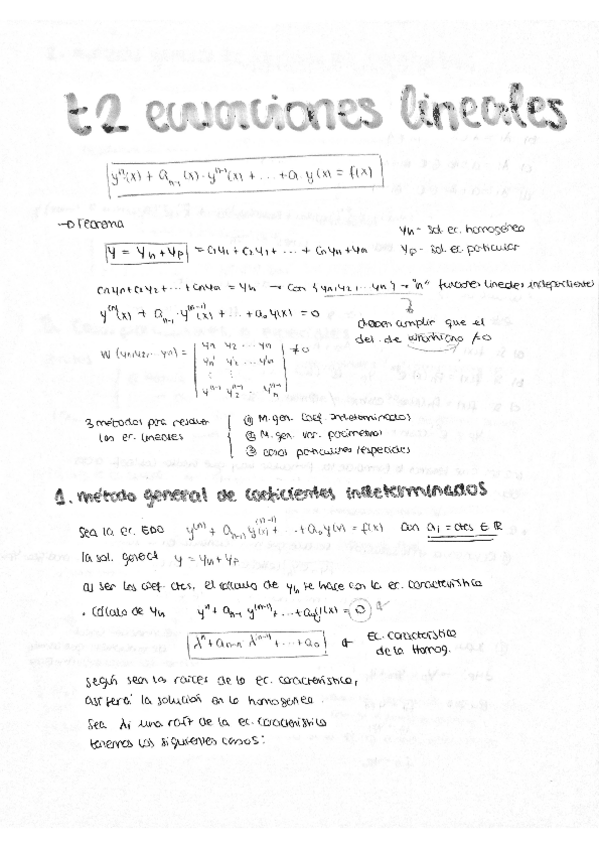 t2 ecuaciones lineales
y⁽ⁿ⁾(x) + aₙ₋₁(x)·y⁽ⁿ⁻¹⁾(x) + ... + a·y(x) = f(x)
→ Teorema
yh = sol. ec. homogénea
y = yh + yp = c1y1 + c2y2 + ... + cnyn + yp
yp = sol. ec. particular
c1y1 + c2y2 + ... + cnyn = yh → con {y1, y2, ... yn} → "n" funciones lineales independientes
y⁽ⁿ⁾(x) + aₙ₋₁·y⁽ⁿ⁻¹⁾(x) + ... + a₀y(x) = 0
deben cumplir que el
det. de wronskiano ≠0
W(y1,y2,...yn) = | y1 y2 ... yn | ≠0
y1' y2' ... yn'
⋮ ⋮
y1ⁿ⁻¹ y2ⁿ⁻¹ ... ynⁿ⁻¹
3 métodos para resolver
las ec. lineales
① M. gen. coef. indeterminados
② M. gen. var. parámetros
③ casos particulares/especiales
1. método general de coeficientes indeterminados
Sea la ec. EDO y⁽ⁿ⁾ + aₙ₋₁y⁽ⁿ⁻¹⁾(x) + ... + a₀y(x) = f(x) con ai = ctes ∈ ℝ
la sol. general y = yh + yp
al ser los coef ctes, el cálculo de yh se hace con la ec. característica
• Cálculo de yh yⁿ + aₙ₋₁ y⁽ⁿ⁻¹⁾ + ... + a₀y(x) = 0
λⁿ + aₙ₋₁ λ⁽ⁿ⁻¹⁾ + ... + a₀
Ec. característica
de la Homog.
según sean las raíces de la ec. característica,
así será la solución en la homogénea.
Sea λi una raíz de la ec. característica
tenemos los siguientes casos: